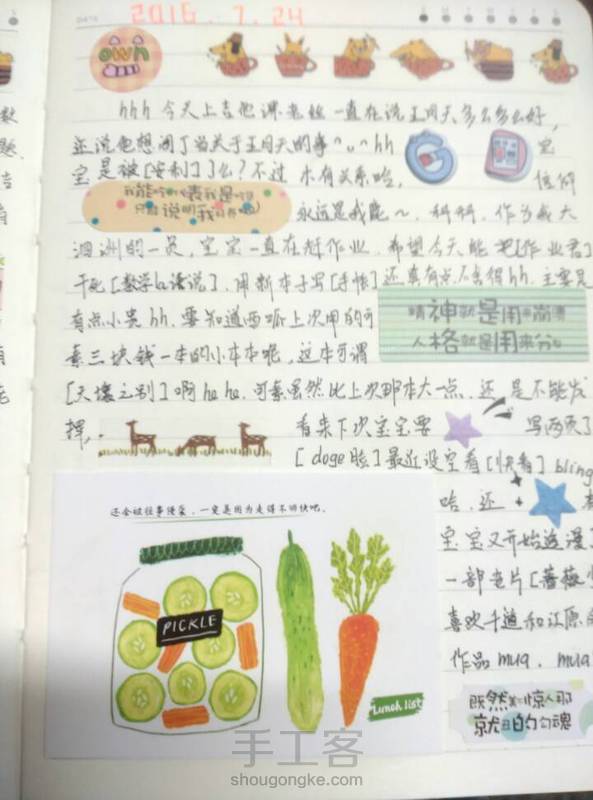 2016.7.24
DATE
S M T W T F S
own
hhh 今天上吉他课老姐一直在说五月天多么多么好,
还说他想问了当关于五月天的事^u^hh
宝
宝是被[安利]了么?不过 木有关系哈,
信仰
我能吟
只能说明我
永远是我能~. 科科, 作为成大
洲的一员, 宝宝一直在赶作业. 希望今天能 把[作业君]
干死[数学&语说]. 用新本子写[手帐]还真有点不舍得hh. 主要是
有点小贵hh. 要知道西 上次用的可
精神就是用来崩溃
人格就是用来分
素三块钱一本的小本本呢, 这本可谓
[天壤之别]啊hehe. 可素虽然比上次那本大一点. 还是不能发
挥,
看来下次宝宝要 写两页了
[doge脸]最近没空看[快看]bling
哈, 还
宝宝又开始
一部老片[蔷薇
喜欢千道和江原
作品mua. mua
还会被往事侵蒙,一定是因为走得不够快吧。
PICKLE
Lunch list
既然 惊人那
就丑的勾魂
手工客
shougongke.com